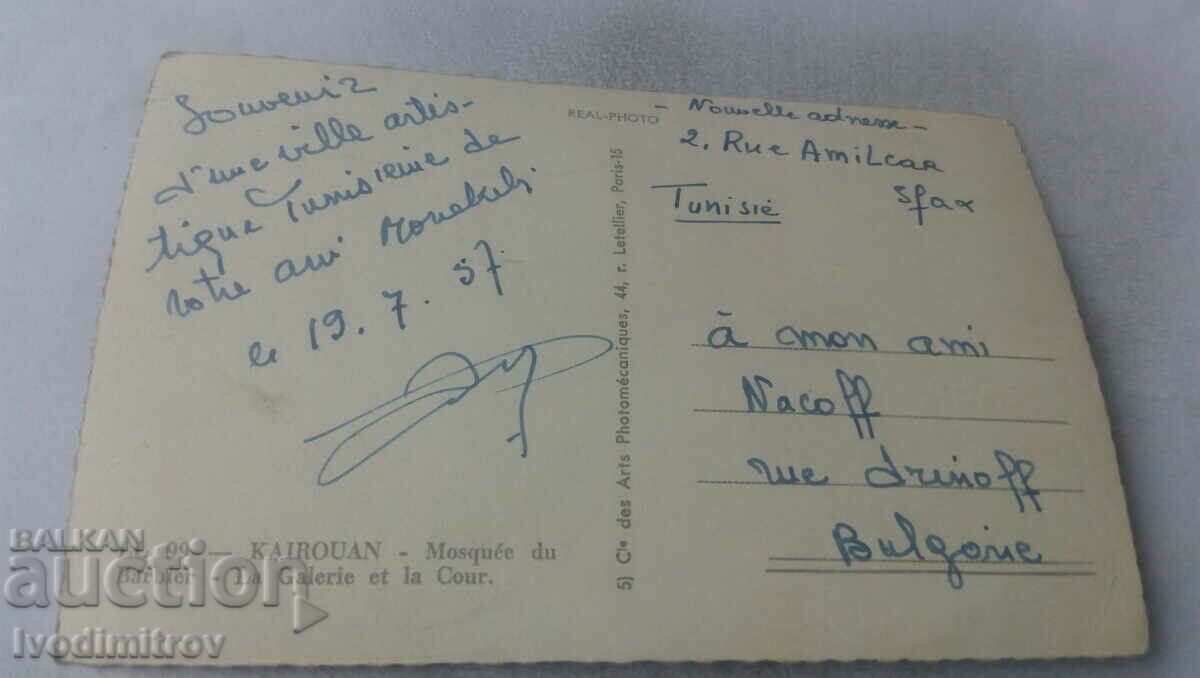 Souvenir
d'une ville artis-
tique Tunisienne de
votre ami
le 19.7.57
99 — KAIROUAN - Mosquée du
Barbier - La Galerie et la Cour.
REAL-PHOTO
5) Cie des Arts Photomécaniques, 44, r. Letellier, Paris-15
- Nouvelle adresse -
2, Rue AmiLcar
Sfax
Tunisie
à mon ami
Nacoff
rue drinoff
Bulgarie
BALKAN
auction
Ivodimitrov